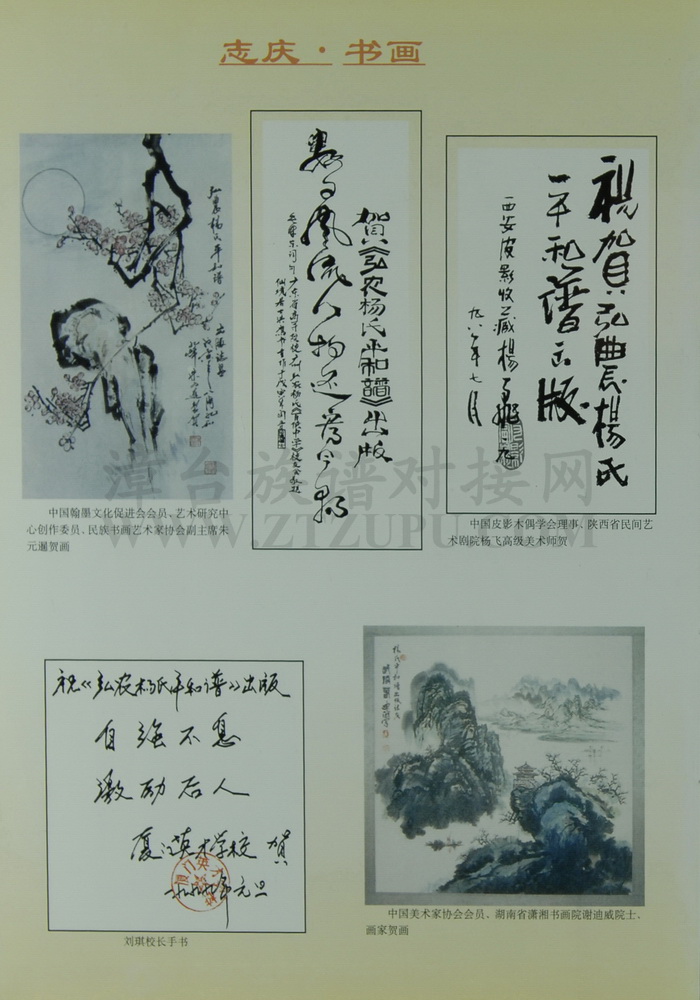 志庆·书画
弘农杨氏平和谱
贺《弘农杨氏平和谱》出版
数风流人物还看今朝
祝贺弘農楊氏
平和譜出版
西安皮影收藏楊飛
九八年七月
中国翰墨文化促进会会员、艺术研究中
心创作委员、民族书画艺术家协会副主席朱
元暹贺画
中国皮影木偶学会理事、陕西省民间艺
术剧院杨飞高级美术师贺
漳台族谱对接网
WWW.ZTZUPU.COM
祝《弘农杨氏平和谱》出版
自强不息
激励后人
厦门英才学校 贺
一九九九年元旦
刘琪校长手书
中国美术家协会会员、湖南省潇湘书画院谢迪威院士、
画家贺画